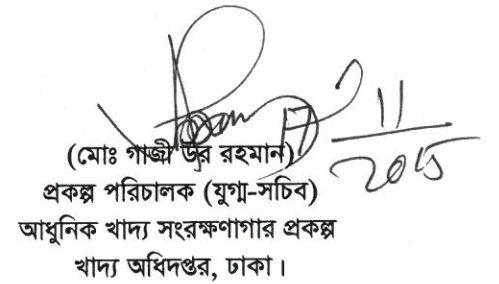 17/11/2015
(মোঃ গাজী উর রহমান)
প্রকল্প পরিচালক (যুগ্ম-সচিব)
আধুনিক খাদ্য সংরক্ষণাগার প্রকল্প
খাদ্য অধিদপ্তর, ঢাকা।